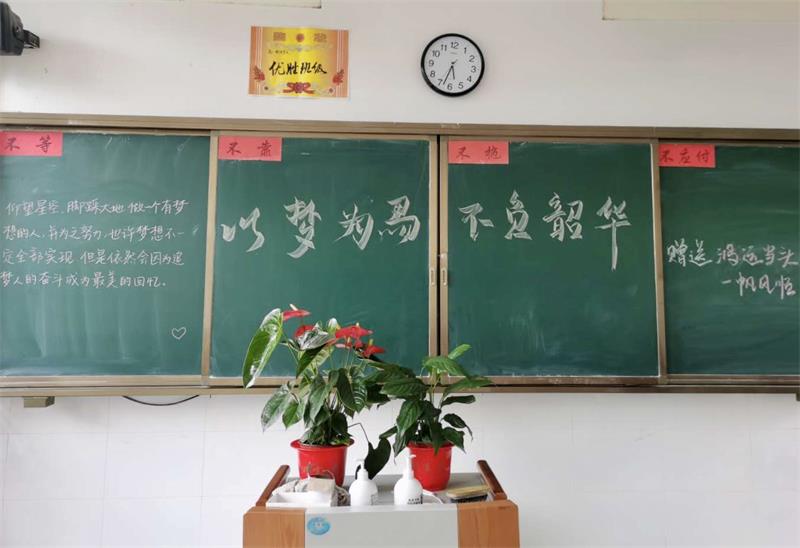 优胜班级
不等
不靠
不拖
不应付
仰望星空、脚踩大地 做一个有梦
想的人,并为之努力,也许梦想不一
定全部实现 但是依然会因为追
梦人的奋斗成为最美的回忆。
以梦为马 不负韶华
赠送 鸿运当头
一帆风